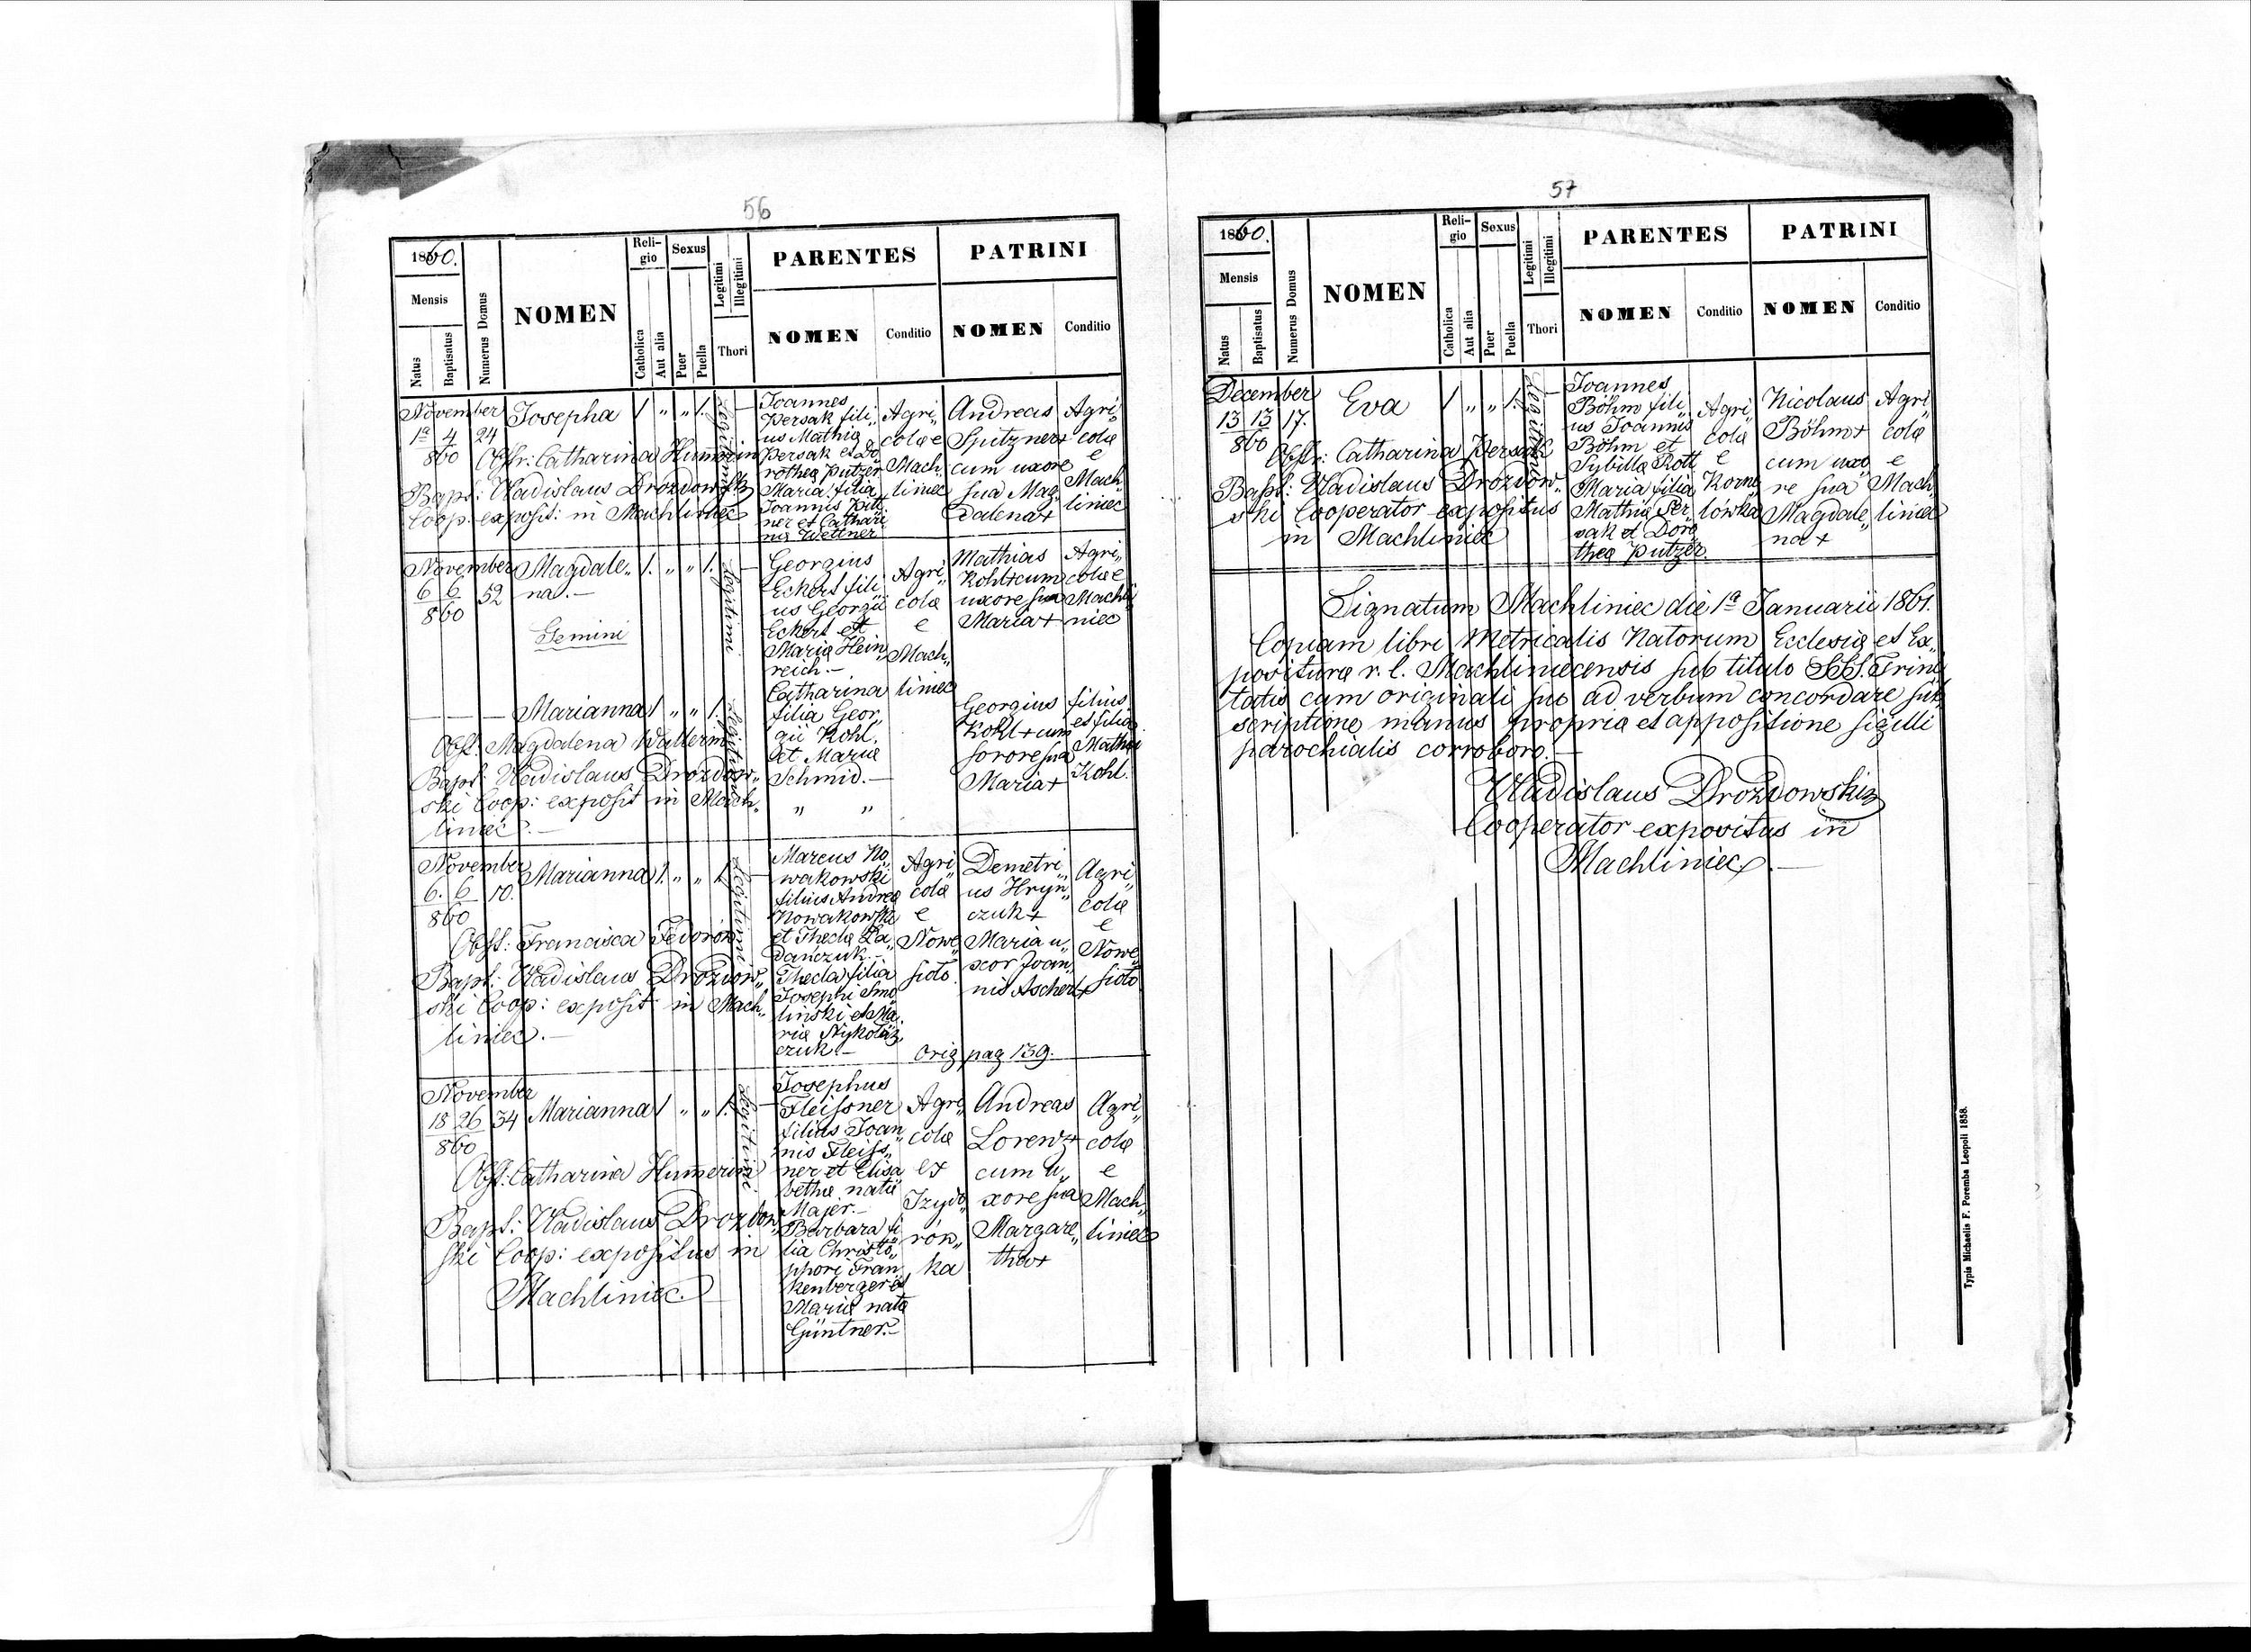 56
1860.
Mensis
Natus
Baptisatus
Numerus Domus
NOMEN
Reli-
gio
Catholica
Aut alia
Sexus
Puer
Puella
Legitimi
Illegitimi
Thori
PARENTES
NOMEN
Conditio
PATRINI
NOMEN
Conditio
November
1ª 4 24
860
Josepha
1 „ „ 1.
Legitimi
Obstr: Catharina Humerin
Bapt: Vladislaus Drozdowski
Coop. exposit: in Machliniec
Joannes
Persak fili„
us Mathiæ
Persak et Do
rotheæ Putzer
Maria filia
Joannis Pitt
ner et Cathari
næ Wettner
Agri„
colæ e
Mach„
liniec
Andreas
Spitzner+
cum uxore
sua Mag„
dalena+
Agri„
colæ
e
Mach„
liniec
November
6 6. 52
860
Magdale„
na.—
Gemini
1. „ „ 1.
Legitimi
Georgius
Eckert fili
us Georgii
Eckert et
Mariæ Hein„
reich.—
Catharina
filia Geor„
gii Kohl.
et Mariæ
Schmid.—
„ „
Agri„
colæ
e
Mach„
liniec
Mathias
Kohl+cum
uxore sua
Maria+
Agri„
colæ e
Machli
niec
— — — Marianna 1 „ „ 1.
Legitimi
Obst. Magdalena Wallerin
Bapt: Vladislaus Drozdow„
ski Coop: exposit in Mach„
liniec.—
Georgius
Kohl+cum
sorore sua
Maria+
filius
et filia
Mathiæ
Kohl.
November
6. 6 10.
860
Marianna 1. „ „ 1.
Legitimi
Obst: Francisca Fedorow
Bapt: Vladislaus Drozdow„
ski Coop: exposit in Mach„
liniec.—
Marcus No„
wakowski
filius Andreæ
Nowakowski
et Theclæ La„
dańczuk.—
Thecla filia
Josephi Smo
linski et Ma„
riæ Nykołaj„
czuk.—
Agri„
colæ
e
Nowe„
sioło.
Demetri„
us Hryn„
czuk+
Maria u„
xor Joan„
nis Ascherl+
Agri„
colæ
e
Nowe„
sioło
orig pag 139.
November
18 26 34
860
Marianna 1 „ „ 1.
Legitimi
Obst: Catharina Humerin
Bapt: Vladislaus Drozdow„
ski Coop: expositus in
Machliniec.—
Josephus
Fleissner
filius Joan„
nis Fleiss„
ner et Elisa
bethæ natæ
Majer.—
Barbara fi
lia Christo„
phori Fran
kenberger et
Mariæ natæ
Güntner.—
Agri„
colæ
ex
Izydo„
rów„
ka
Andreas
Lorenz+
cum u„
xore sua
Margare„
tha+
Agri„
colæ
e
Mach„
liniec
57
1860.
Mensis
Natus
Baptisatus
Numerus Domus
NOMEN
Reli-
gio
Catholica
Aut alia
Sexus
Puer
Puella
Legitimi
Illegitimi
Thori
PARENTES
NOMEN
Conditio
PATRINI
NOMEN
Conditio
December
13 13 17.
860
Eva
1 „ „ 1.
Legitimi
Obstr: Catharina Persak
Bapt: Vladislaus Drozdow„
ski Cooperator expositus
in Machliniec
Joannes
Böhm fili„
us Joannis
Böhm et
Sybillæ Rott
Maria filia
Mathiæ Per„
sak et Doro
theæ Putzer.
Agri„
colæ
e
Korne„
lówka
Nicolaus
Böhm+
cum uxo„
re sua
Magdale„
na+
Agri„
colæ
e
Mach„
liniec
Signatum Machliniec die 1ª Januarii 1861.
Copiam libri Metricalis Natorum Ecclesiæ et Ex„
posituræ r. l. Machliniecensis sub titulo SSS. Trini
tatis cum originali suo ad verbum concordare sub„
scriptione manus propria et appositione sigilli
parochialis corroboro.—
Vladislaus Drozdowski
Cooperator expositus in
Machliniec.—
Typis Michaelis F. Poremba Leopoli 1858.